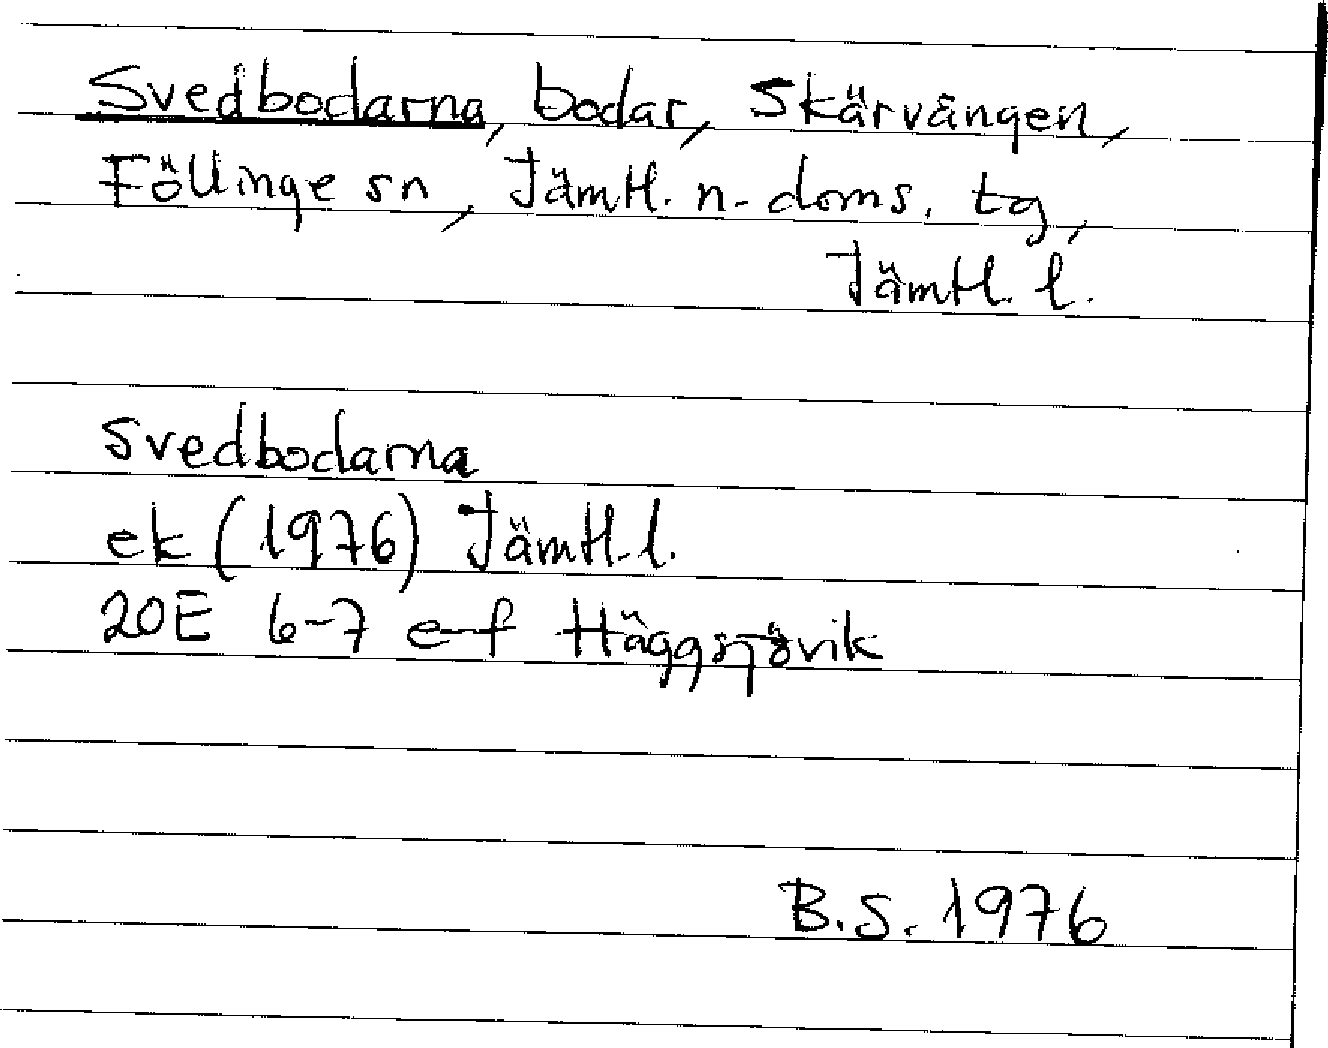 Svedbodarna, bodar, Skärvången,
Föllinge sn, Jämtl. n. doms. tg,
Jämtl. l.
Svedbodarna
ek (1976) Jämtl. l.
20E 6-7 e-f Häggsjövik
B.S. 1976